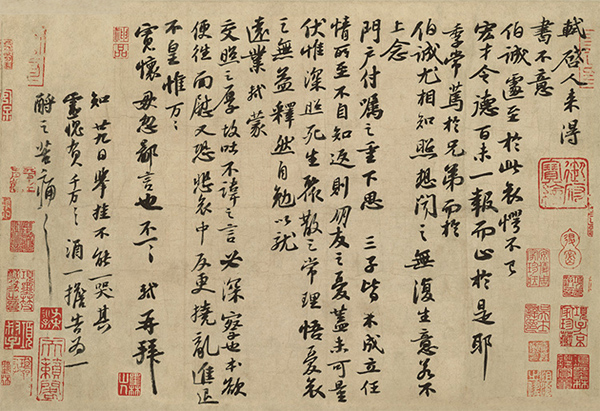 軾啓人来得
書不意
伯誠遽至於此哀愕不已
宏才令德百未一報而止於是耶
季常篤於兄弟而於
伯誠尤相知照想聞之無復生意若不
上念
門戶付囑之重下思三子皆未成立任
情所至不自知返則朋友之憂蓋未可量
伏惟深照死生聚散之常理悟憂哀
之無益釋然自勉以就
遠業軾蒙
交照之厚故吐不諱之言必深察也本欲
便往面慰又恐悲哀中反更撓亂進退
不皇惟万〻
寬懷毋忽鄙言也不一〻軾再拜
知廿九日舉挂不能一哭其
靈愧負千万〻〻酒一擔告為一
酹之苦痛〻〻